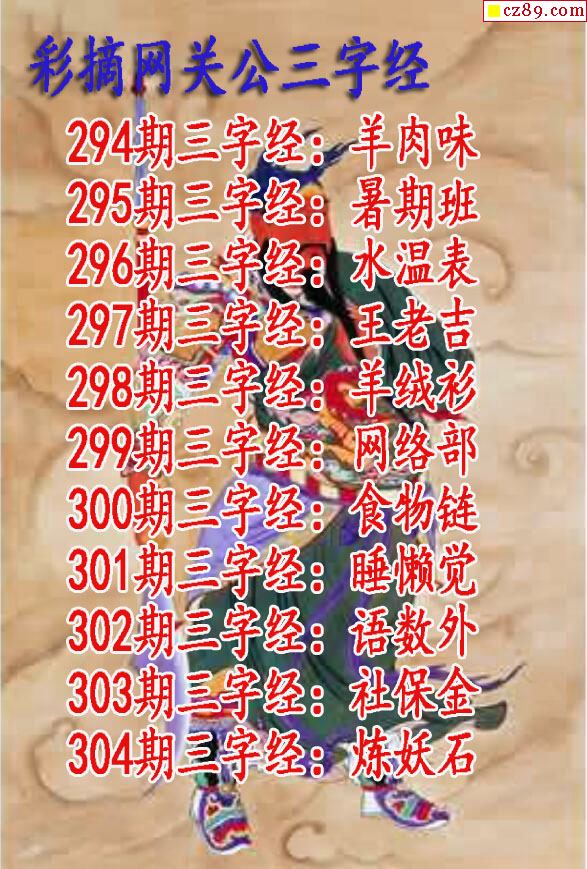 cz89.com
彩摘网关公三字经
294期三字经：羊肉味
295期三字经：暑期班
296期三字经：水温表
297期三字经：王老吉
298期三字经：羊绒衫
299期三字经：网络部
300期三字经：食物链
301期三字经：睡懒觉
302期三字经：语数外
303期三字经：社保金
304期三字经：炼妖石